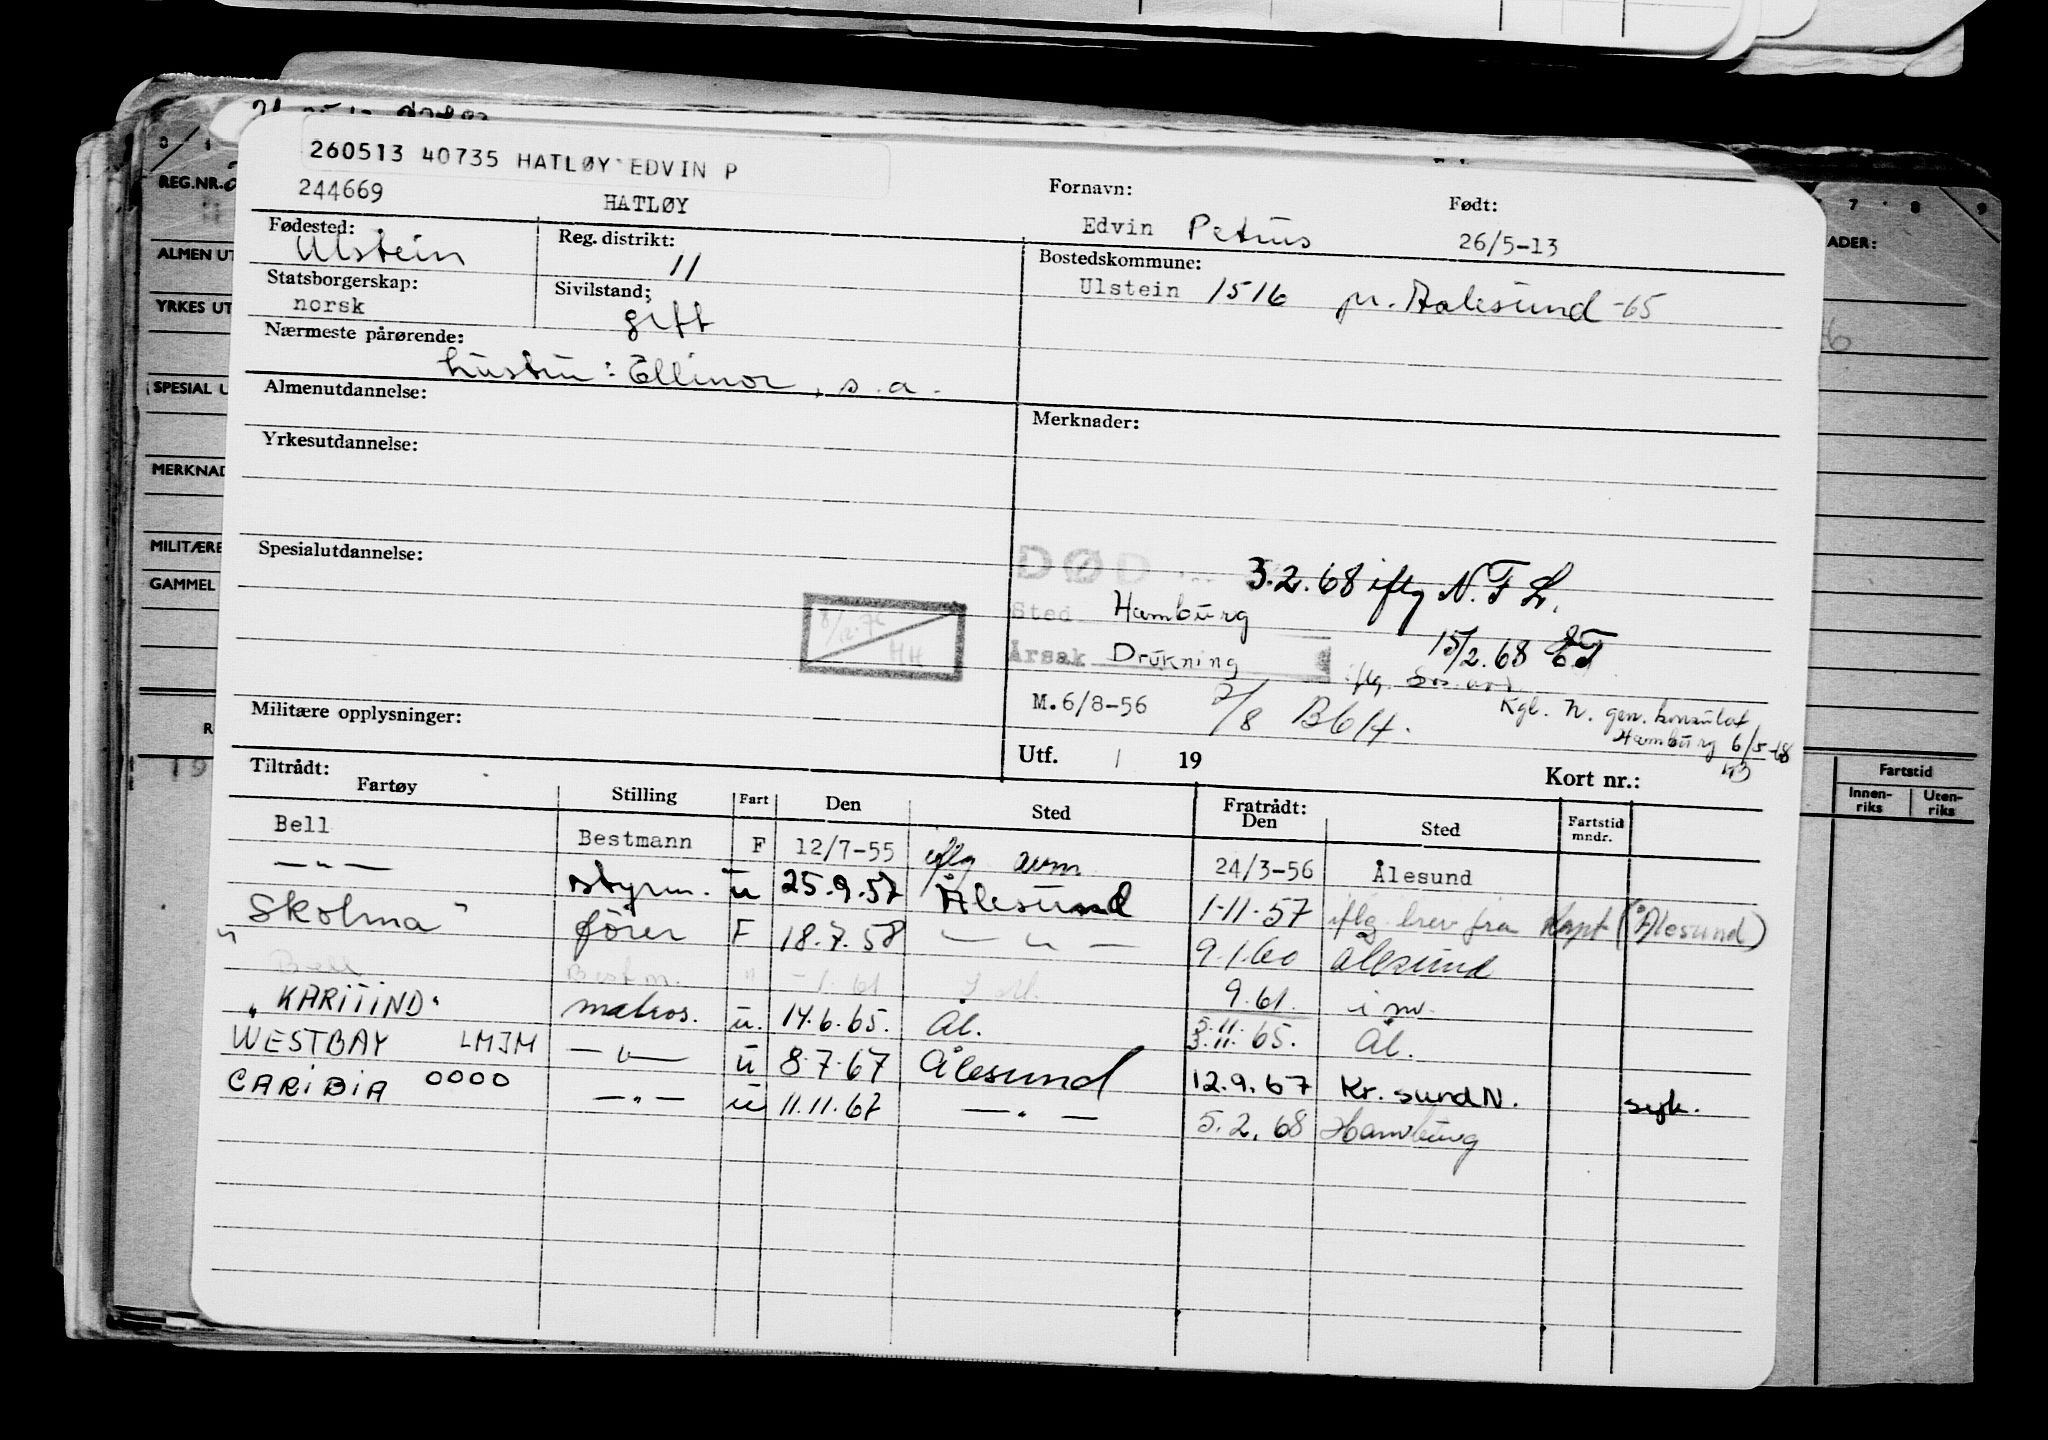 260513 40735 HATLØY EDVIN P
244669 HATLØY
Fornavn: Edvin Petrus
Født: 26/5-13
Fødested: Ulstein
Reg. distrikt: 11
Bostedskommune: Ulstein 1516 pr. Aalesund -65
Statsborgerskap: norsk
Sivilstand: gift
Nærmeste pårørende: hustru: Ellinor, s.a.
Almenutdannelse:
Merknader:
Yrkesutdannelse:
Spesialutdannelse:
DØD 3.2.68 iflg N.F.L.
Sted Hamburg 15/2.68
Årsak Drukning
iflg.
Kgl. N. gen. konsulat
Hamburg 6/5-68
M.6/8-56 7/8 B614.
8/12.72
HH
Militære opplysninger:
Utf. / 19
Kort nr.:
Tiltrådt: Fratrådt:
Fartøy Stilling Fart Den Sted Den Sted Fartstid mndr.
Bell Bestmann F 12/7-55 iflg avm 24/3-56 Ålesund
—"— styrm. u 25.9.57 Ålesund 1-11-57 iflg. brev fra Kapt (Ålesund)
"Skolma" fører F 18.7.58 —"— 9.1.60 Ålesund
Bell Bestm. " -1.61 9.61.
"KARITIND" matros. u. 14.6.65. Ål. 5.11.65. Ål.
3.11.
WESTBAY LMJM —"— u 8.7.67 Ålesund 12.9.67 Kr. sund N. syk.
CARIBIA OOOO —"— u 11.11.67 —"— 5.2.68 Hamburg
REG.NR.
ALMEN UT
YRKES UT
SPESIAL U
MERKNAD
MILITÆRE
GAMMEL
19
7 8 9
ADER:
Fartstid
Innen-
riks
Uten-
riks